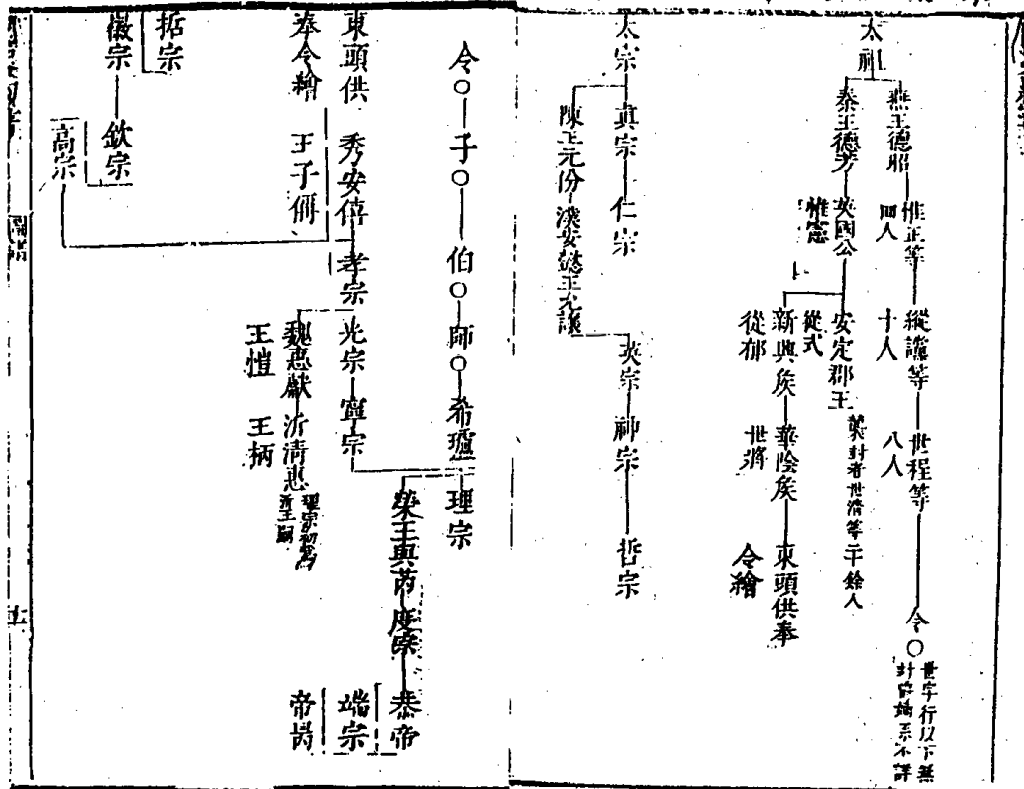 太祖
燕王德昭
惟正等
四人
縱讜等
十人
世程等
八人
令〇
世字行以下無
封爵端系不詳
秦王德芳
英國公
惟憲
安定郡王
從式
襲封者世清等二十餘人
新興侯
從郁
華陰侯
世將
東頭供奉
令繪
太宗
真宗
仁宗
陳王元份
濮安懿王允讓
英宗
神宗
哲宗
令〇
子〇
伯〇
師〇
希瓐
理宗
榮王與芮
度宗
恭帝
端宗
帝昺
東頭供
奉令繪
秀安僖
王子偁
孝宗
光宗
寧宗
魏惠獻
王愷
沂清惠
王柄
理宗初為
沂王嗣
哲宗
徽宗
欽宗
高宗